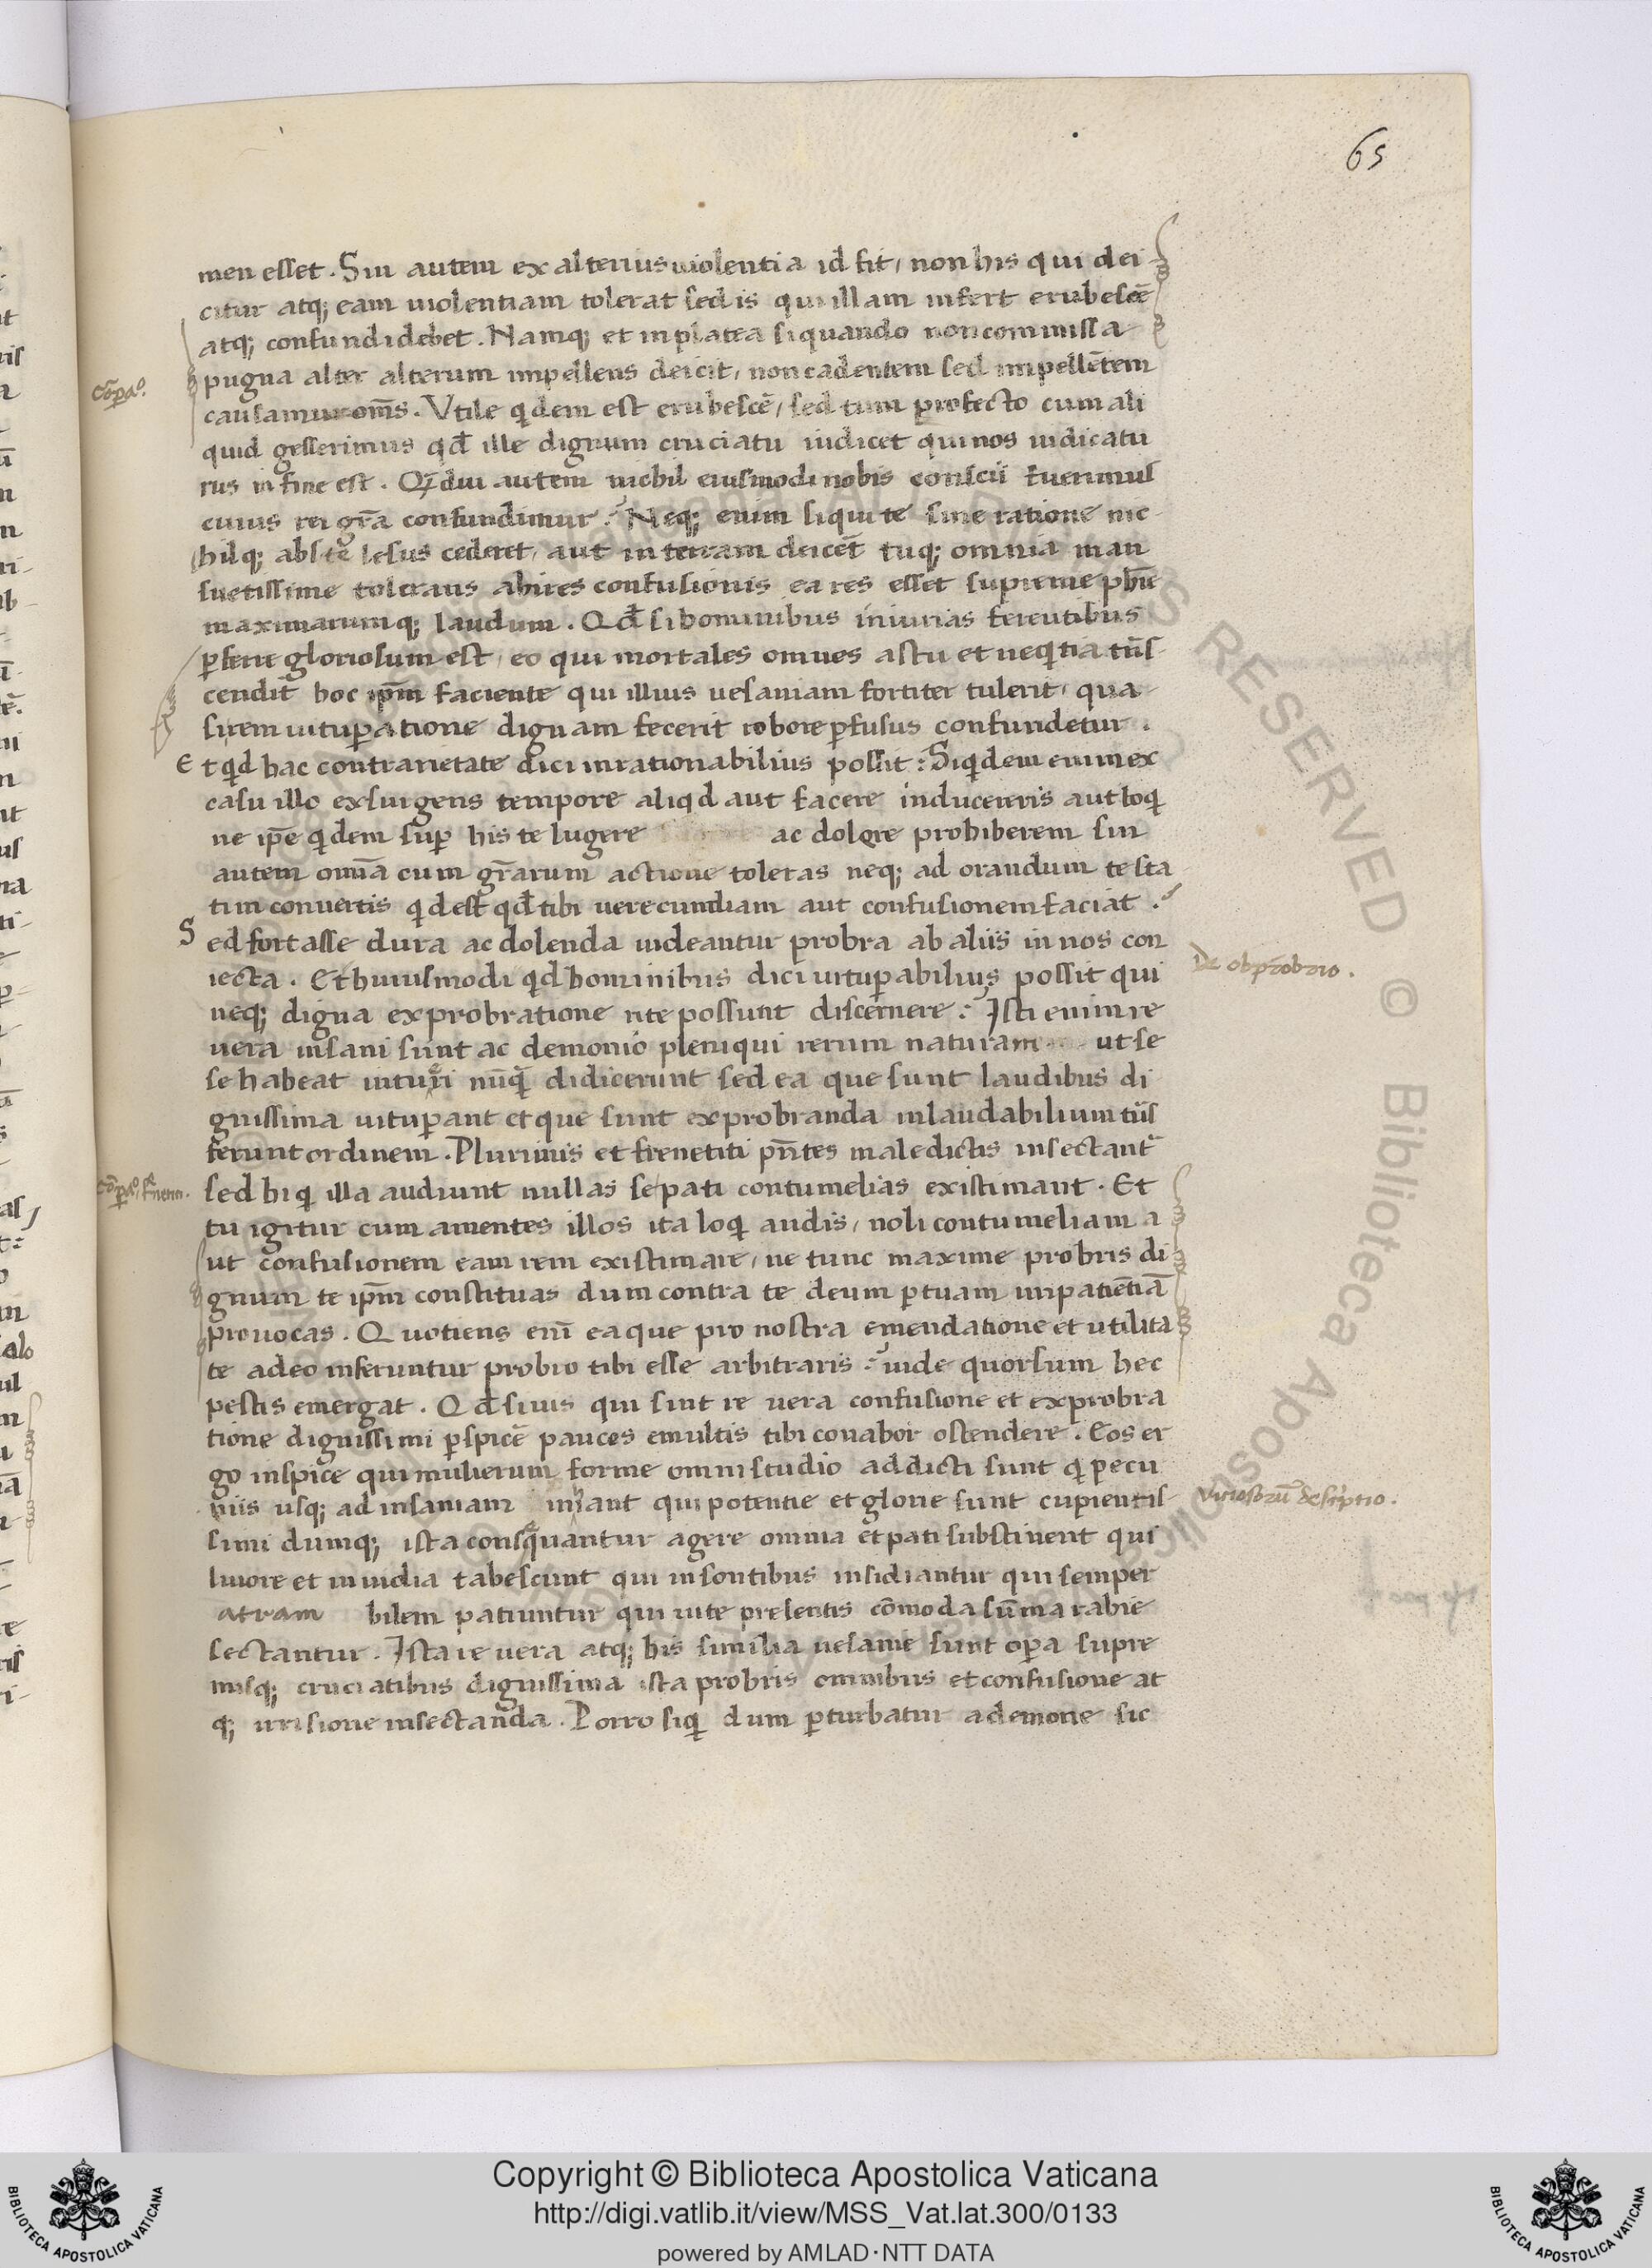 65
men esset. Sin autem ex alterius uiolentia id fit, non his qui dei-
citur atq; eam uiolentiam tolerat sed is qui illam infert erubescē
atq; confundi debet. Namq; et in platea si quando non commissa
cōpaº.
pugna alter alterum impellens deicit, non cadentem sed impellētem
causamur om̄s. Vtile qidem est erubescē, sed tum profecto cum ali
quid gesserimus qđ ille dignum cruciatu iudicet qui nos iudicatu
rus in fine est. Qͣdiu autem nichil eiusmodi nobis conscii fuerimus
cuius rei gr̄a confundimur? Neq; enim siqui te sine ratione nic-
hilq; abs te lesus cederet, aut in terram deicet̄ tuq; omnia man
suetissime tolerans abires confusionis ea res esset supreme phie
maximarumq; laudum. Qđ si hominibus iniurias ferentibus
ꝑferre gloriosum est, eo qui mortales omnes astu et neqitia tn̄s-
cendit hoc ip̄m faciente qui illius uesaniam fortiter tulerit, qua
si rem uituꝑatione dignam fecerit robore ꝑfusus confundetur.
Et qid hac contrarietate dici inrationabilius possit? Siqidem enim ex
casu illo exsurgens tempore aliqid aut facere induceteris aut loqi
ne ip̄e qidem suꝑ his te lugere ac dolore prohiberem sin
autem omīa cum gr̄arum actione toleras neq; ad orandum te sta
tim conuertis qid est qđ tibi uerecundiam aut confusionem faciat?
Sed fortasse dura ac dolenda uideantur probra ab aliis in nos con
De obprobrio.
iecta. Et huiusmodi qid hominibus dici uituꝑabilius possit qui
neq; digna exprobratione rite possunt discernere? Isti enim re
uera insani sunt ac demonio pleni qui rerum naturam ut se
se habeat intueri nūqͣ didicerunt sed ea que sunt laudibus di
gnissima uituꝑant et que sunt exprobranda in laudabilium tn̄s
ferunt ordinem. Plurimis et frenetiti pn̄tes maledictis insectantͬ
sed hi qi illa audiunt nullas se pati contumelias existimant. Et
tu igitur cum amentes illos ita loqi audis, noli contumeliam a
ut confusionem eam rem existimare, ne tunc maxime probris di
gnum te ip̄m constituas dum contra te deum ꝑ tuam impatiētiā
prouocas. Quotiens enī ea que pro nostra emendatione et utilita
te adeo inferuntur probro tibi esse arbitraris? uide quorsum hec
pestis emergat. Qđ si uis qui sint re uera confusione et exprobra
tione dignissimi ꝑspicē pauces e multis tibi conabor ostendere. Eos er
go inspice qui mulierum forme omni studio addicti sunt qi pecu
niis usq; ad insaniam iniant qui potentie et glorie sunt cupientis-
Vitiosorū descriptio.
simi dumq; ista consequantur agere omnia et pati substinent qui
liuore et inuidia tabescunt qui insontibus insidiantur qui semper
atram bilem patiuntur qui uite presentis cōmoda sūma rabie
sectantur. Ista re uera atq; his similia uesanie sunt oꝑa supre
misq; cruciatibus dignissima ista probris omnibus et confusione at
q; irrisione insectanda. Porro siqi dum ꝑturbatur a demone sic
Copyright © Biblioteca Apostolica Vaticana
http://digi.vatlib.it/view/MSS_Vat.lat.300/0133
powered by AMLAD·NTT DATA
BIBLIOTECA APOSTOLICA VATICANA
BIBLIOTECA APOSTOLICA VATICANA